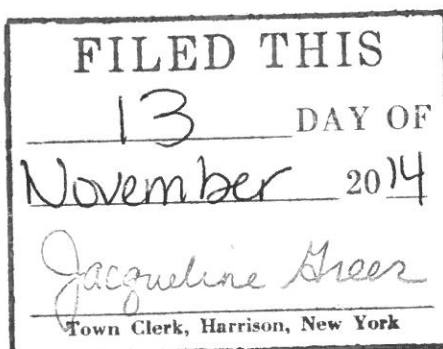 FILED THIS
13 DAY OF
November 2014
Jacqueline Greer
Town Clerk, Harrison, New York